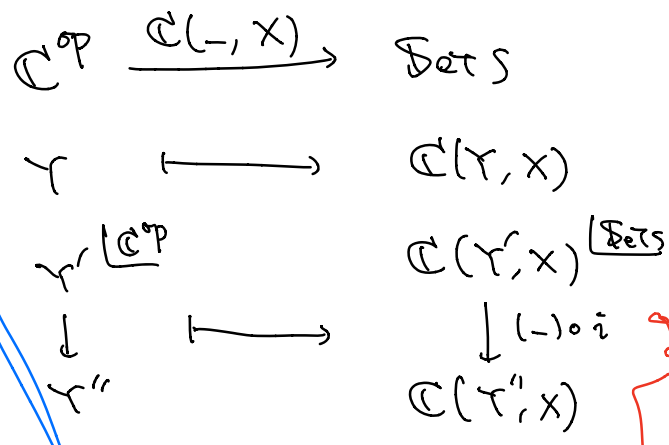 ℂ^op ℂ(−, X) Sets
Y ↦ ℂ(Y, X)
Y′ ℂ^op ℂ(Y′, X) Sets
↓ ↦ ↓ (−)∘i
Y″ ℂ(Y″, X)